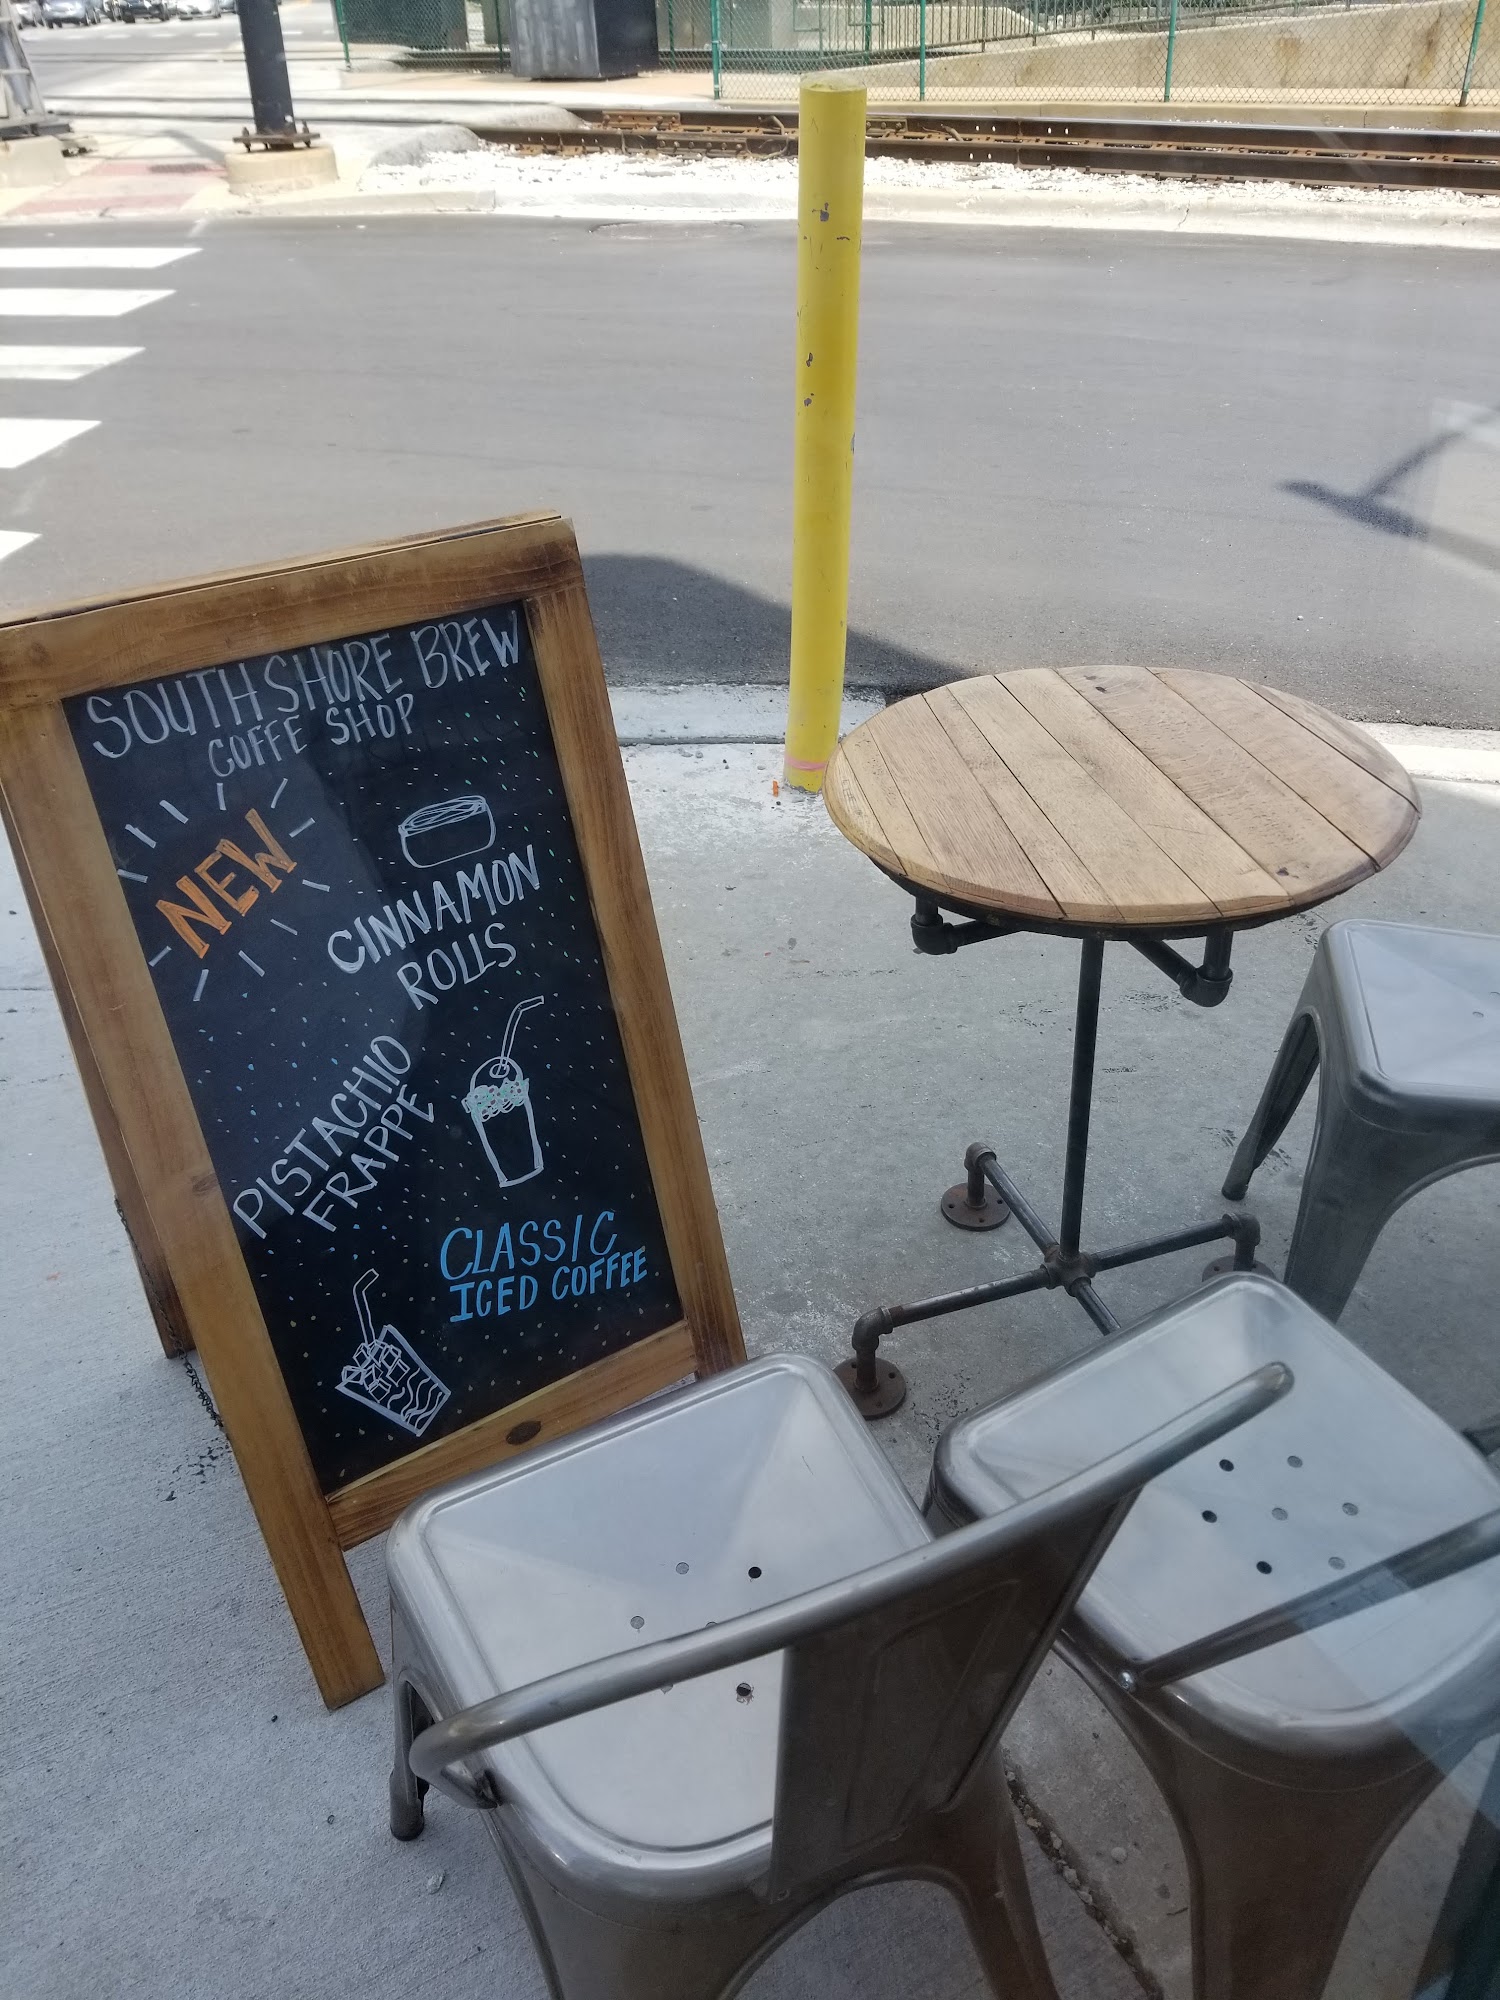 SOUTH SHORE BREW
COFFE SHOP
NEW
CINNAMON
ROLLS
PISTACHIO
FRAPPE
CLASSIC
ICED COFFEE